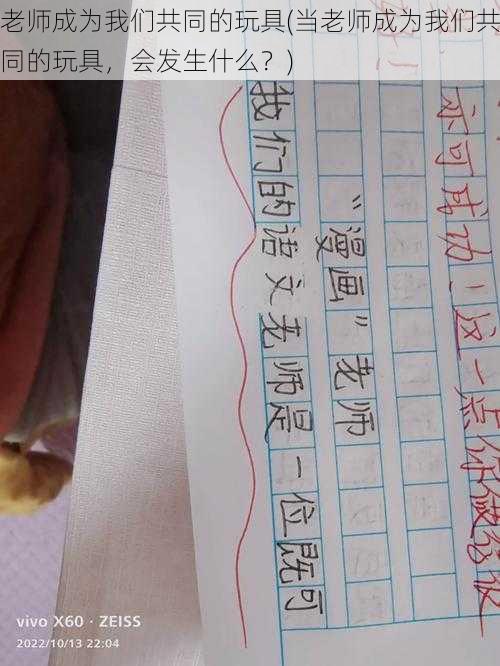 老师成为我们共同的玩具(当老师成为我们共
同的玩具，会发生什么？)
亦可成功！这一点你做得很
“漫画”老师
我们的语文老师是一位既可
vivo X60 · ZEISS
2022/10/13 22:04